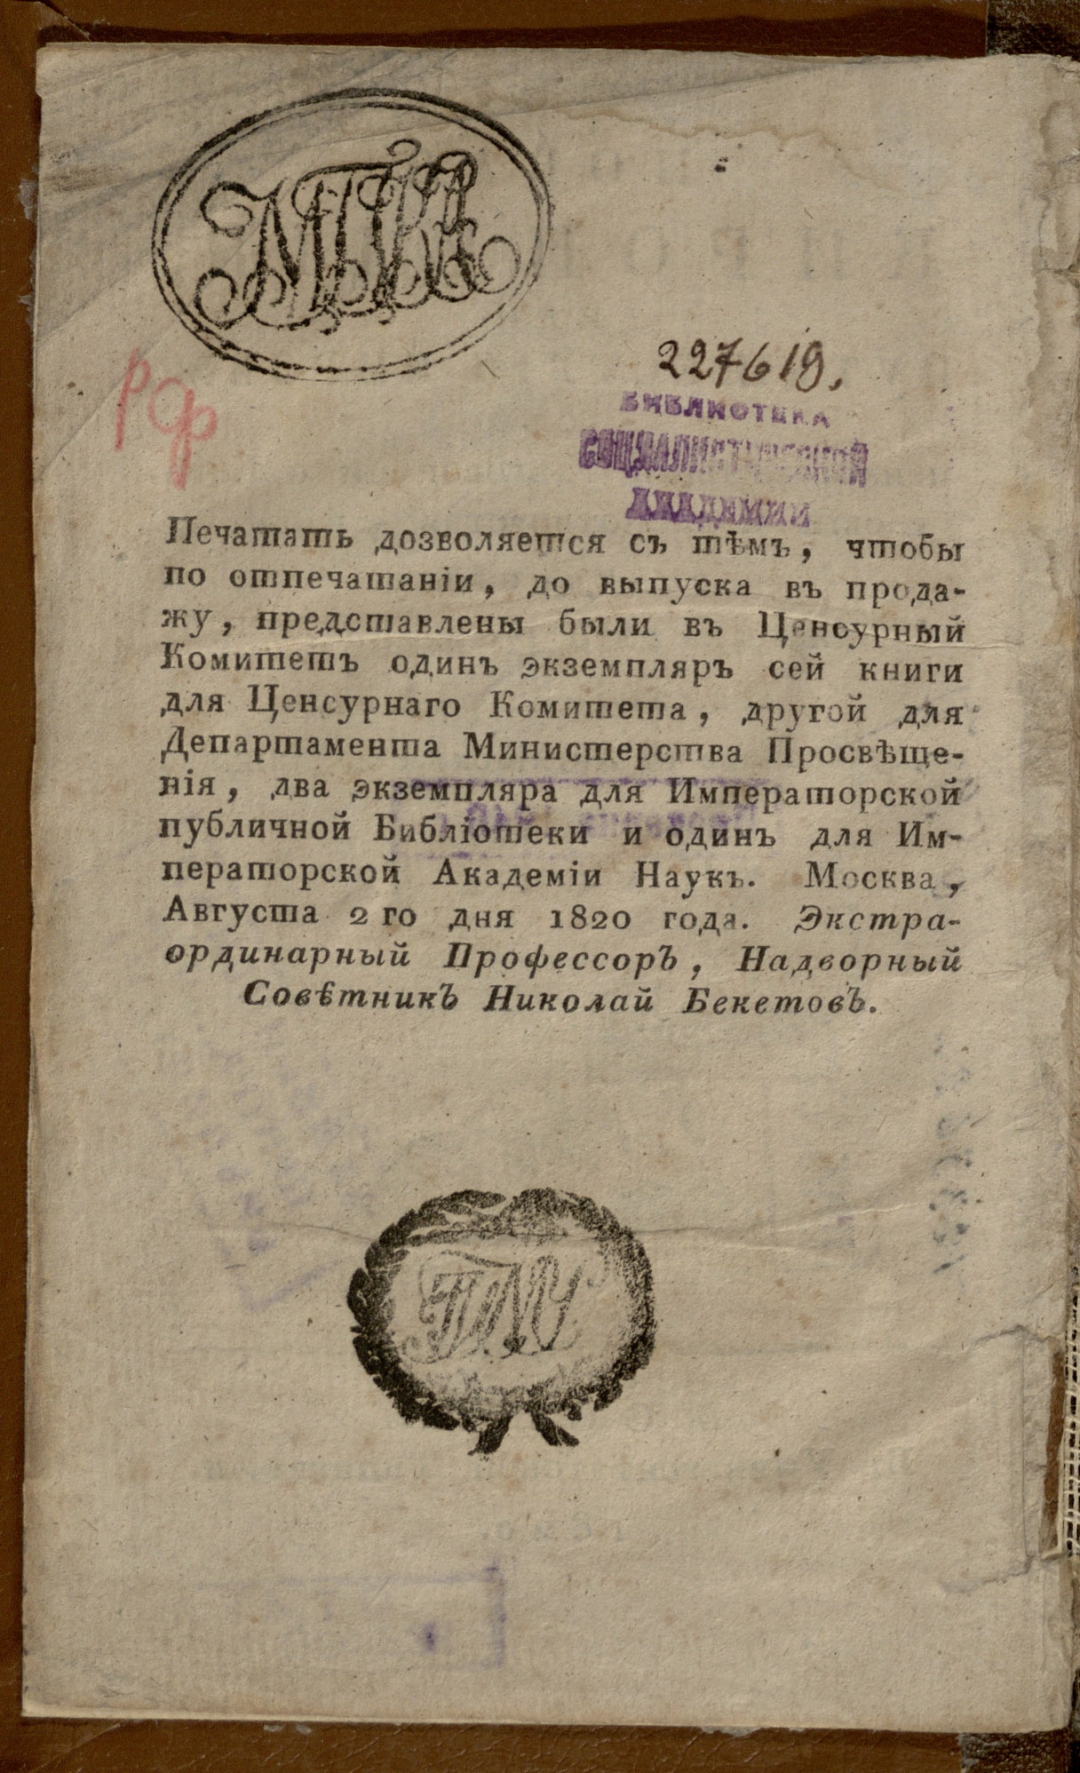 227619.
рф
БИБЛИОТЕКА
СОЦИАЛИСТИЧЕСКОЙ
АКАДЕМИИ
Печатать дозволяется съ тѣмъ, чтобы
по отпечатаніи, до выпуска въ прода-
жу, представлены были въ Ценсурный
Комитетъ одинъ экземпляръ сей книги
для Ценсурнаго Комитета, другой для
Департамента Министерства Просвѣще-
нія, два экземпляра для Императорской
публичной Библіотеки и одинъ для Им-
ператорской Академіи Наукъ. Москва,
Августа 2 го дня 1820 года. Экстра-
ординарный Профессоръ, Надворный
Совѣтникъ Николай Бекетовъ.